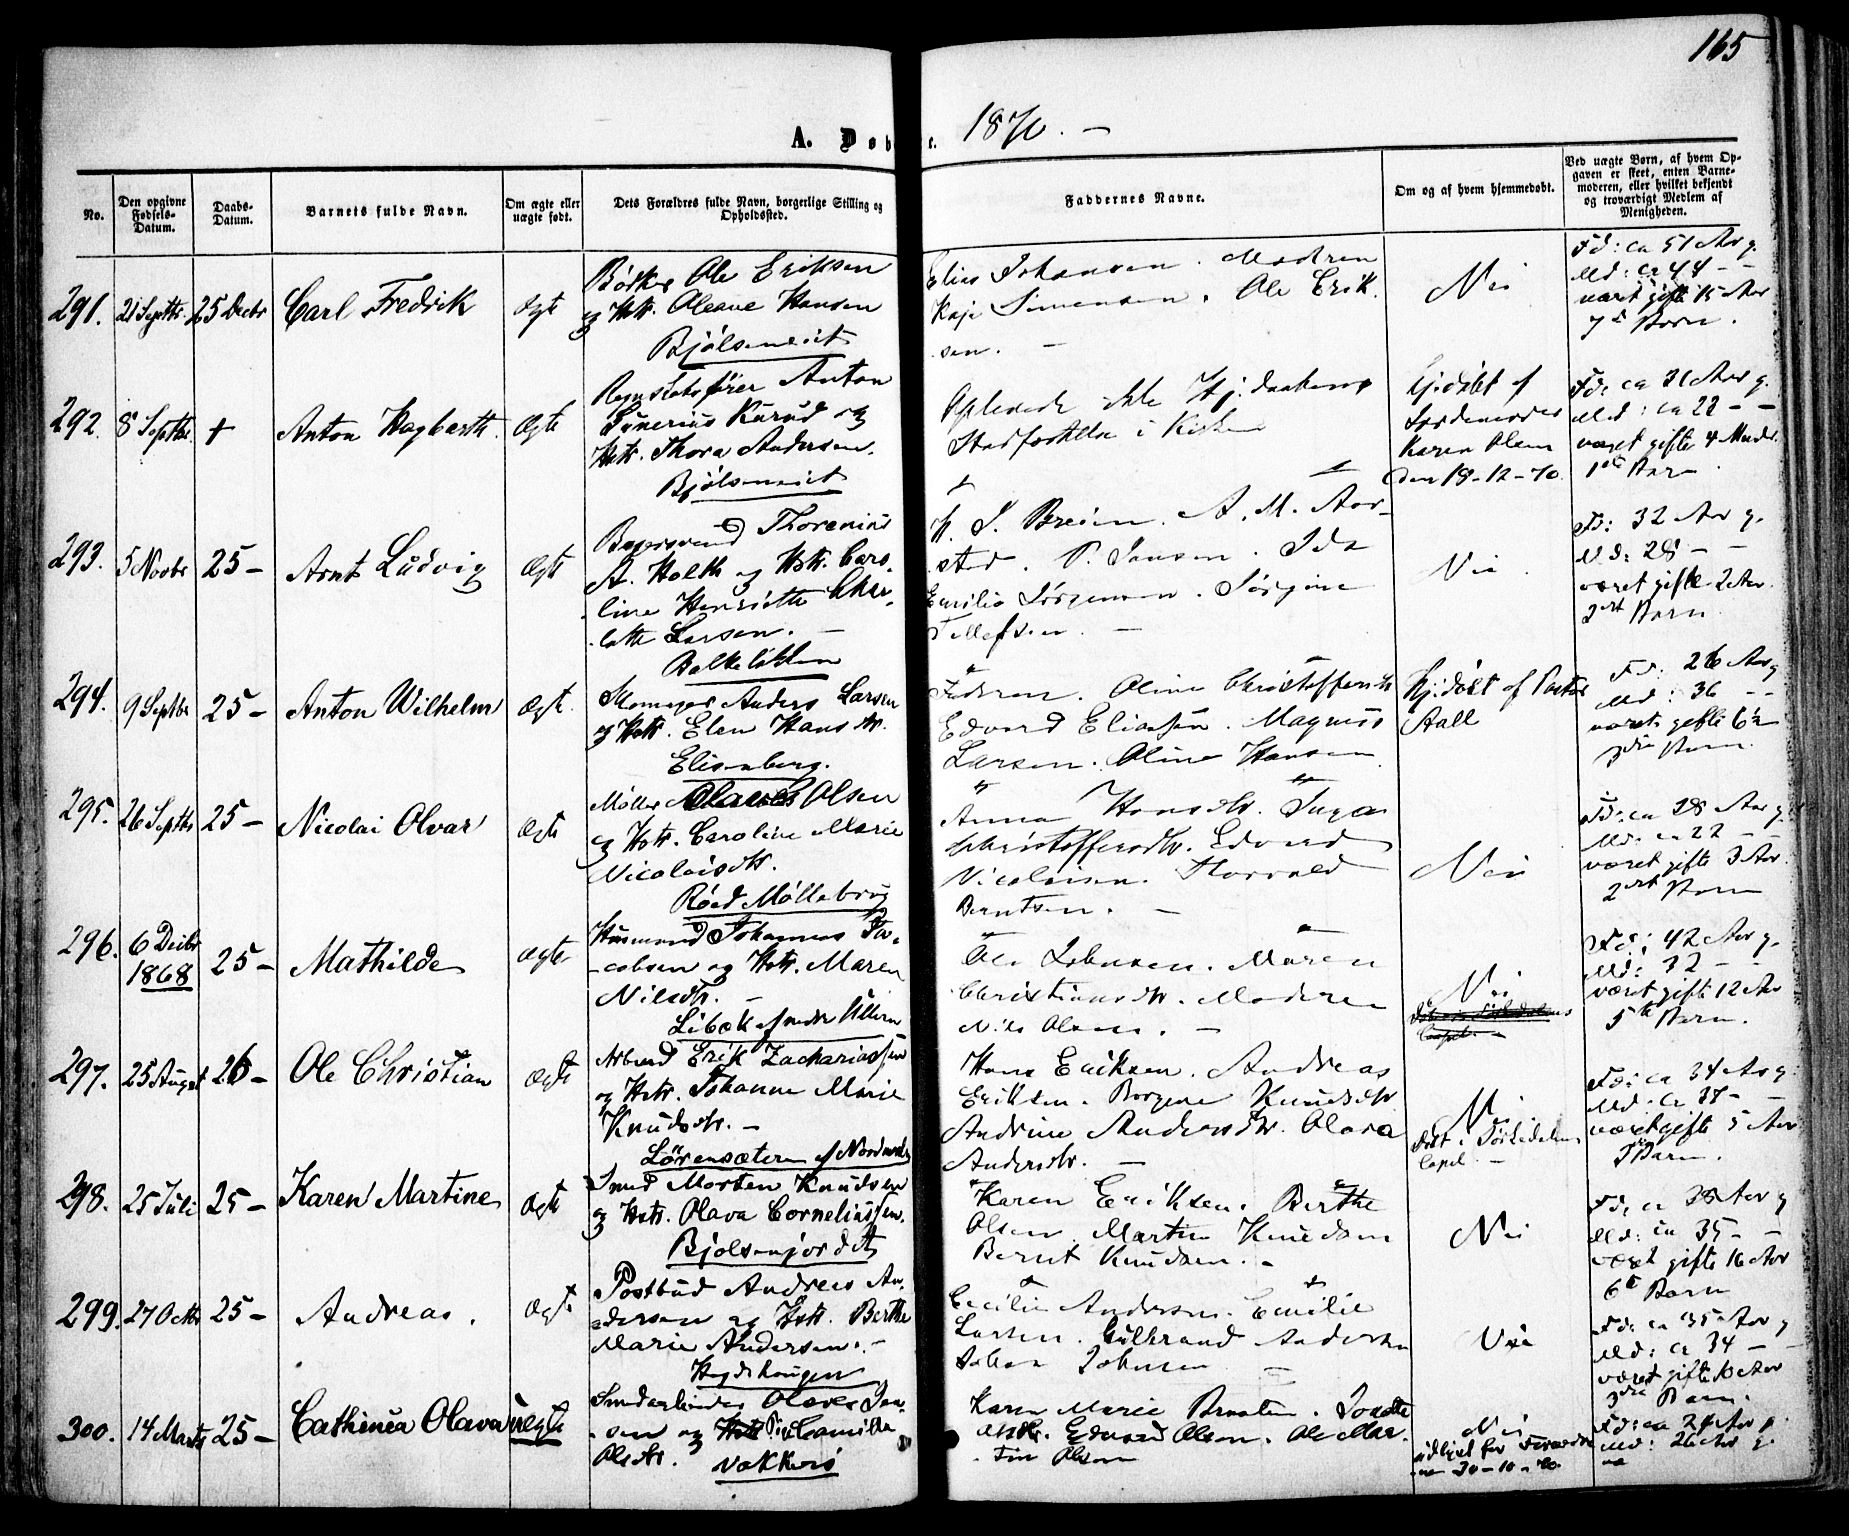 165
A. Døb e. 1870. —
No.
Den opgivne Fødsels-Datum.
Daabs-Datum.
Barnets fulde Navn.
Om ægte eller uægte født.
Dets Forældres fulde Navn, borgerlige Stilling og Opholdssted.
Faddernes Navne.
Om og af hvem hjemmedøbt.
Ved uægte Børn, af hvem Opgaven er skeet, enten Barnemoderen, eller hvilket bekjendt og troværdigt Medlem af Menigheden.
291. 21 Septbr. 25 Decbr Carl Fredrik Ægte
Bødker Ole Eriksen
og Hstr. Oleave Hansen
Bjølsen
Elias Johansen. Modren
Kaja Simensen. Ole Erik
sen. —
Nei
Fd: ca 51 Aar g.
Md: ca 44 — —
været gifte 15 Aar
7d Barn.
292. 8 Septbr. + Anton Hagbarth. Ægte
Anton
Kurud og
Hstr. Thora Andersen.
Bjølsen
Oplevede ikke Hj.daabens
Stadfæstelse i Kirken
Hj.døbt af
Jordemoder
Karen Olsen
den 19-12-70.
Fd: ca 21 Aar g.
Md: ca 22 — —
været gifte 4 Mndr.
1ste Barn
293. 5 Novbr 25 — Arnt Ludvig Ægte
Thorenius
A. Holth og Hstr. Caro-
line Henriette Char-
lotte Larsen. —
Balkeløkken
H. J. Breien. A. M. Aar-
stad. P. Jansen. Ida
Emilie Jørgensen. Jørgine
Tellefsen. —
Nei
Fd: 32 Aar g.
Md: 28 — —
været gifte 2 Aar.
2det Barn
294. 9 Septbr 25 — Anton Wilhelm Ægte.
Skomager Anders Larsen
og Hstr. Elen Hansdtr.
Elisenberg.
Faderen. Oline Christoffersdtr
Edvard Eliassen. Magnus
Larsen. Oline Hansen
Hj.døbt af Pastor
Aall
Fd: 26 Aar g
Md: 36 — —
været gifte 6½
3die Barn.
295. 26 Septbr 25 — Nicolai Olvar Ægte
Møller Olaves Olsen
og Hstr. Caroline Marie
Nicolaisdtr.
Røed Møllebrug
Anna Hansdtr. Inga
Christoffersdtr. Edvard
Nicolaisen. Thorvald
Berntsen. —
Nei
Fd: ca 28 Aar g.
Md: ca 22 — —
været gifte 3 Aar
2det Barn
296. 6 Decbr 1868 25 — Mathilde Ægte
Husmand Johannes Ja-
cobsen og Hstr. Maren
Nilsdtr. —
Libæk af nedre Ullern
Ole Johnsen. Maren
Christiansdtr. Moderen
Nils Olsen. —
Nei
Capel. —
Fd: 42 Aar g.
Md: 32 — —
været gifte 12 Aar
5te Barn.
297. 25 August 26 — Ole Christian Ægte
Arbmd Erik Zachariassen
og Hstr. Johanne Marie
Knudsdtr. —
Lørensæteren af Normarken
Hans Eriksen. Andreas
Eriksen. Borgene Knudsdtr
Andrine Andersdtr. Olava
Andersdtr. —
Nei
Døbt i Sørkedalens
Capel. —
Fd: ca 34 Aar g.
Md: ca 38 — —
været gifte 5 Aar
Barn.
298. 25 Juli 25 — Karen Martine Ægte
Smed Morten Knudsen
og Hstr. Olava Corneliussen.
Bjølsenjordet
Karen Eriksen. Berthe
Olsen. Martin Knudsen
Bernt Knudsen. —
Nei
Fd: ca 38 Aar g
Md: ca 35 — —
været gifte 16 Aar
6te Barn
299. 27 Octbr 25 — Andreas. Ægte
Postbud Andreas An-
dersen og Hstr. Berthe
Marie Andersen. —
Hegdehaugen
Cecilie Andersen. Emilie
Larsen. Gulbrand Andersen
Johan Johnsen —
Nei
Fd: ca 35 Aar g
Md: ca 34 — —
været gifte 10 Aar
3die Barn.
300. 14 Marts 25 — Cathinca Olava Uægte
Olaves Jan-
sen og Pige Camilla
Olsdtr. Vækkerø
Karen Marie Braaten.
Edvard Olsen. Ole Mar-
tin Olsen
Nei
30-10-70
Fd: ca 24 Aar
Md: 26 Aar g.